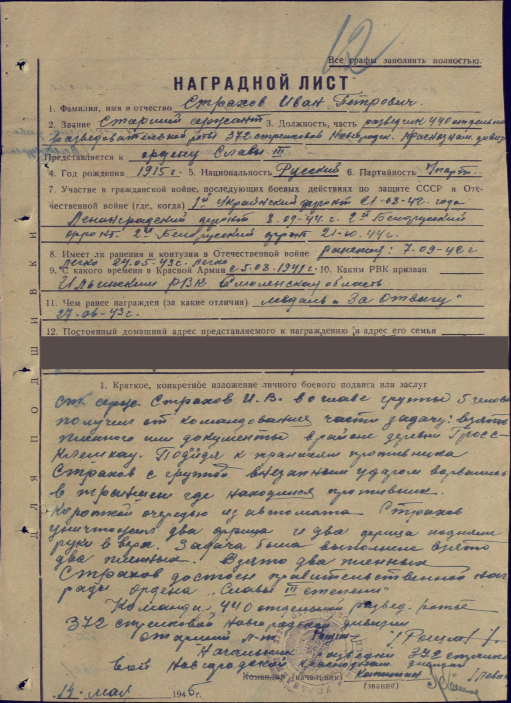 12
Все графы заполнять полностью.
НАГРАДНОЙ ЛИСТ
1. Фамилия, имя и отчество Страхов Иван Петрович.
2. Звание Старший сержант 3. Должность, часть разведчик 440 отдельной
разведовательной роты 372 стрелковой Новгородск. Краснознам. дивиз.
Представляется к ордену Славы III
4. Год рождения 1915 г. 5. Национальность Русский 6. Партийность
7. Участие в гражданской войне, последующих боевых действиях по защите СССР и Оте-
чественной войне (где, когда) 1й Украинский фронт 21-03-42. года
Ленинградский фронт 3.09-44 г. 2й Белорусский
фронт. 2й Белорусский фронт 21-10.44 г.
8. Имеет ли ранения и контузии в Отечественной войне ранения: 7.09-42 г.
легко 24.05-43 г. легко
9. С какого времени в Красной Армии с 5.03-1941 г. 10. Каким РВК призван
Ильинским РВК Смоленская область
11. Чем ранее награжден (за какие отличия) медаль „За отвагу"
27-06-43 г.
12. Постоянный домашний адрес представляемого к награждению и адрес его семьи
1. Краткое, конкретное изложение личного боевого подвига или заслуг
ст. серж. Страхов И.В. во главе группы 5 человек
получил от командования части задачу: взять
пленного или документы в районе деревни Гросс-
Подойдя к траншеям противника
Страхов с группой внезапным ударом ворвались
в траншеи где находился противник.
Короткой очередью из автомата Страхов
уничтожил два фрица и два фрица подняли
руки вверх. Задача была выполнена взято
два пленных. Взято два пленных
Страхов достоен правительственной наг-
рады Ордена „Славы III степени"
Командир 440 отдельной развед. роты
372 стрелковой Новгородской дивизии
старший л-т
Начальник разведки 372 стрелко-
вой Новгородской краснознам дивизии
Командир (начальник) Капитан
(звание)
14 мая 1945 г.